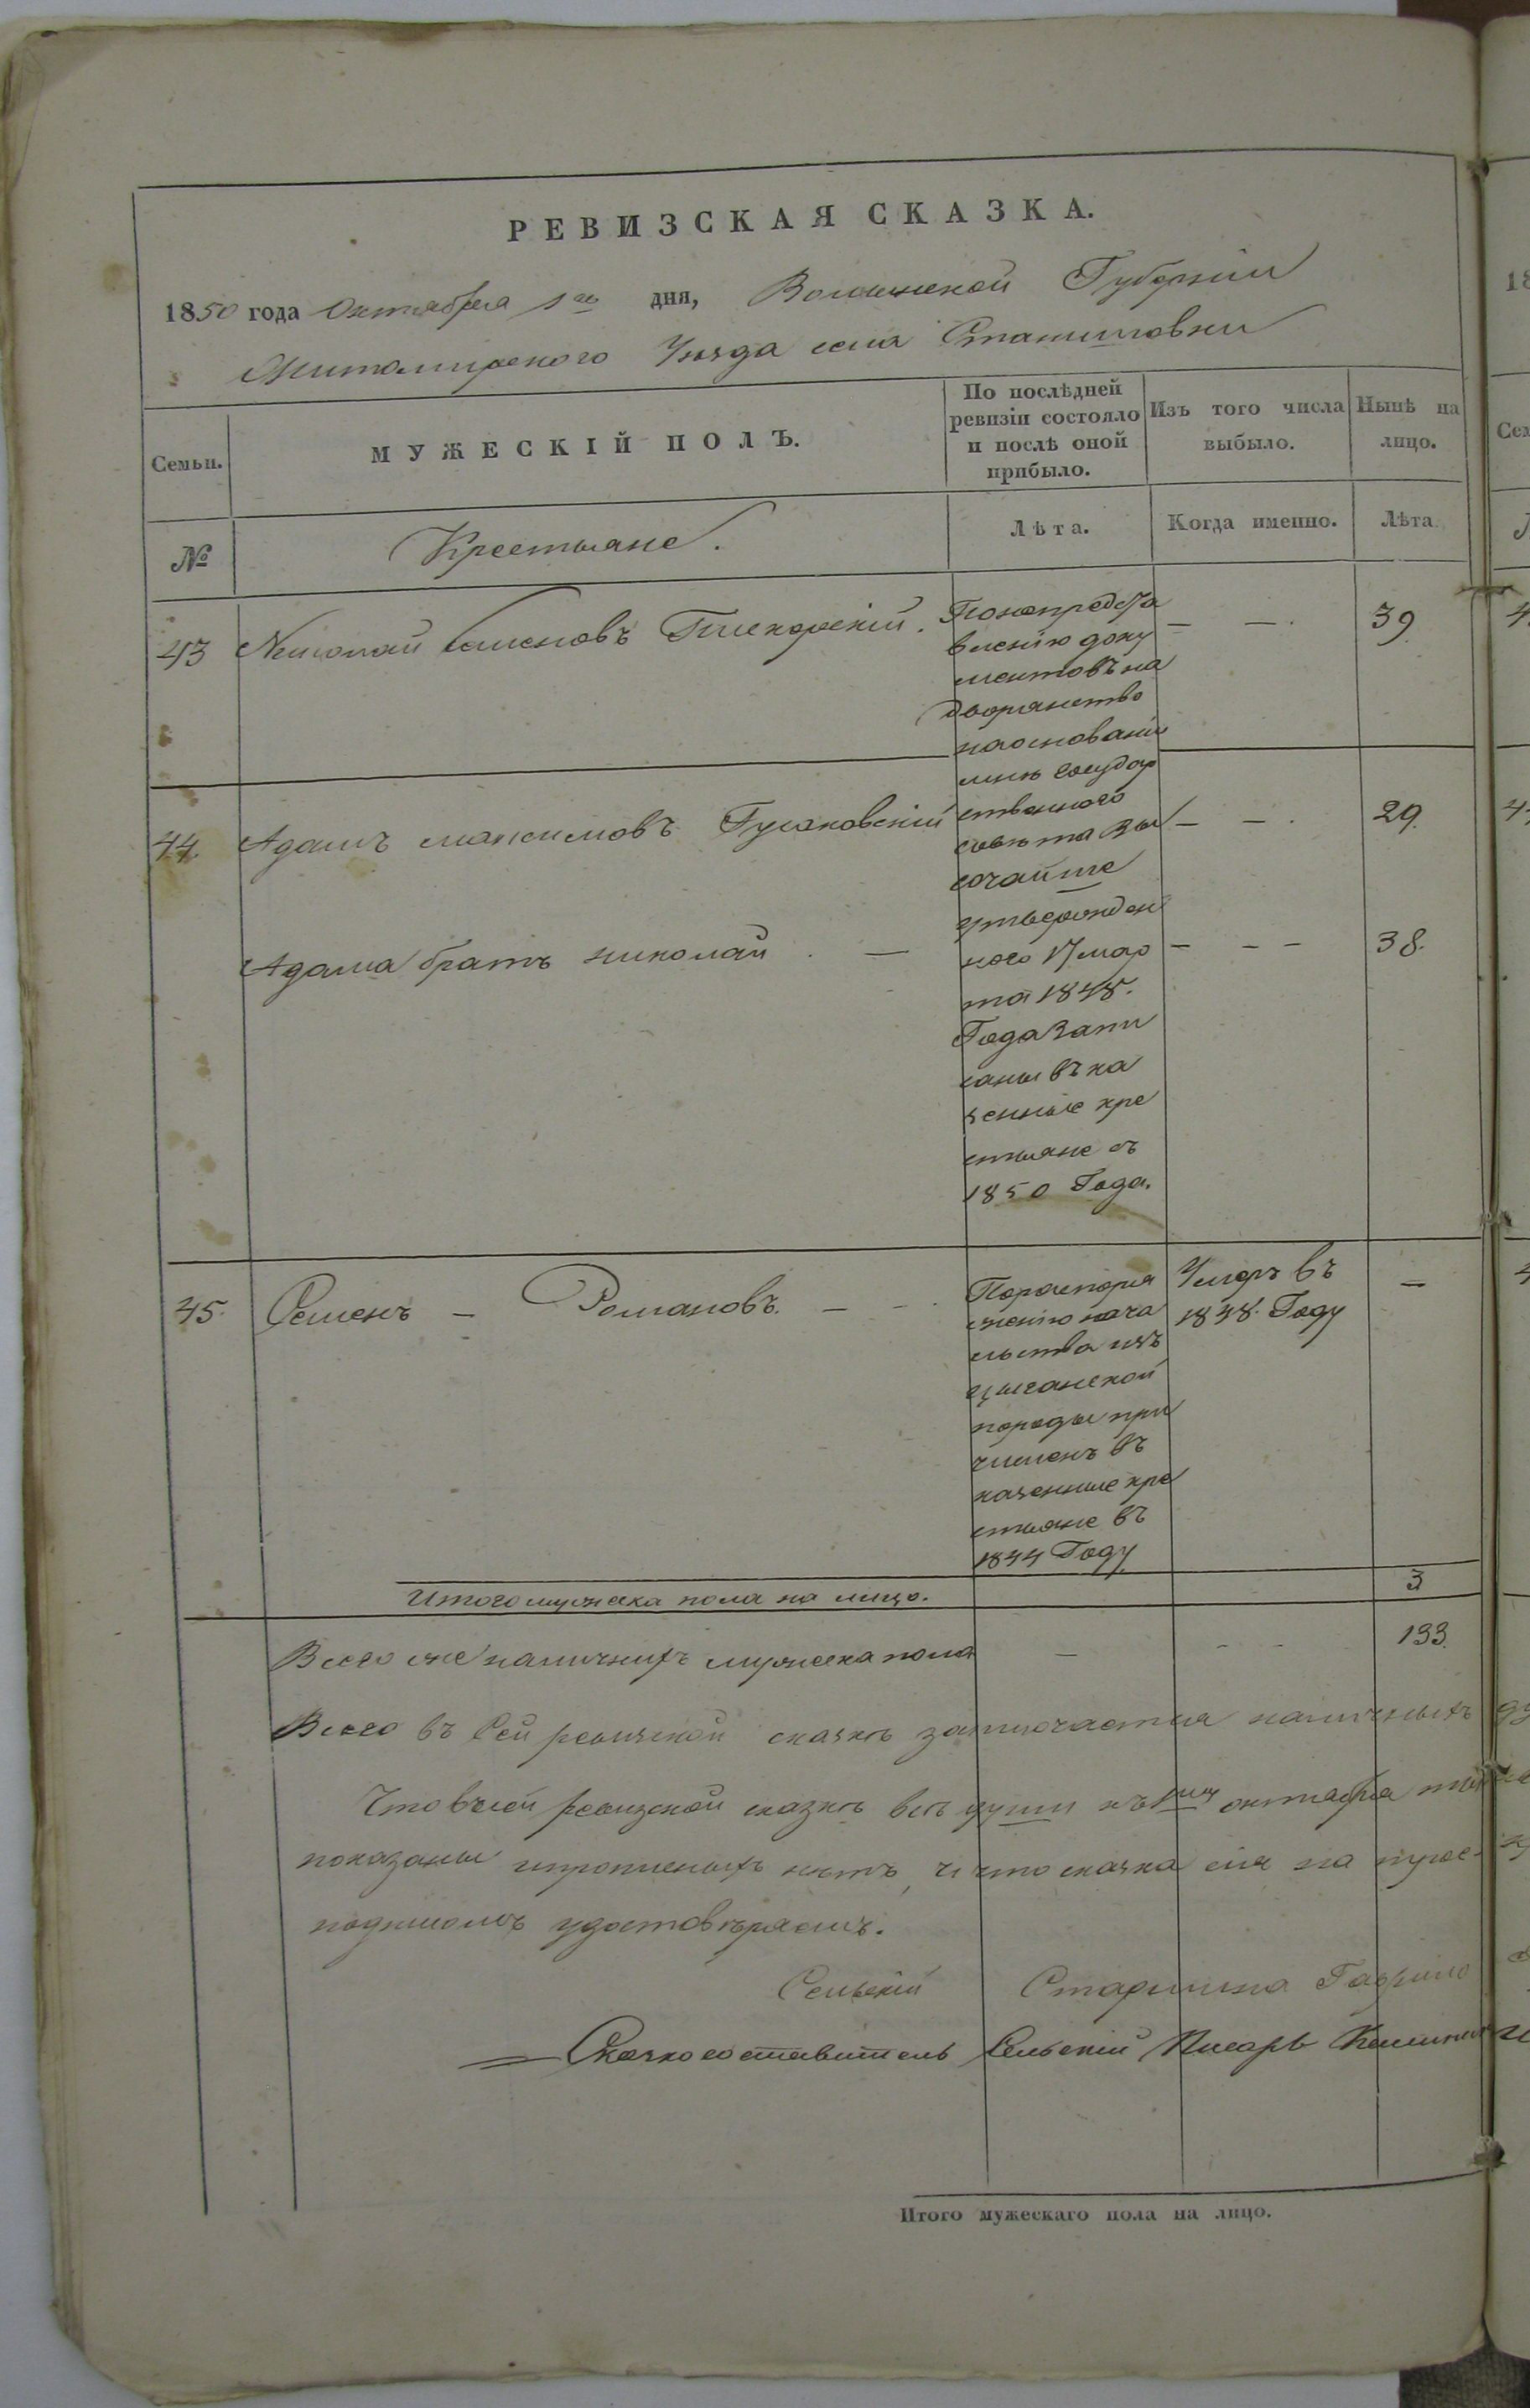 РЕВИЗСКАЯ СКАЗКА.
1850 года Октября 1го дня, Волынской Губерніи
Житомирского Уѣзда села Станишовки
Семьи.
МУЖЕСКІЙ ПОЛЪ.
По послѣдней
ревизіи состояло
и послѣ оной
прибыло.
Изъ того числа
выбыло.
Нынѣ на
лицо.
№
Крестьяне.
Лѣта.
Когда именно.
Лѣта.
43 Николай Семеновъ — — . 39
Понепредста
вленію доку
ментовъ на
дворянство
наосновании
мнѣ Государ
ственного
44. Адамъ максимовъ Гусаковскій — — . 29.
совѣта Вы
сочайше
утвержден
Адама братъ николай . — — — — 38.
ного 17 мар
та 1848.
Года Запи
саны въ ка
зенные кре
стьяне съ
1850 Года.
45. Семенъ — Романовъ. — — .
Порасторя
женію нача
льства изъ
цыганской
породы при
численъ въ
казенные кре
стьяне въ
1844 Году
Умеръ въ
1848. Году
—
Итого мужеска пола на лицо. 3
Всего же наличныхъ мужеска пола — — — 133.
Всего въ Сей ревизской сказкѣ заключается наличныхъ
Что въ сей ревизской сказкѣ всѣ души къ 1му октября
показаны ипрописныхъ нѣтъ, и что сказка сія
удостовѣряемъ.
Сельскій Старшина Гаврило
Сказкосоставитель Сельскій Писарь
Итого мужескаго пола на лицо.